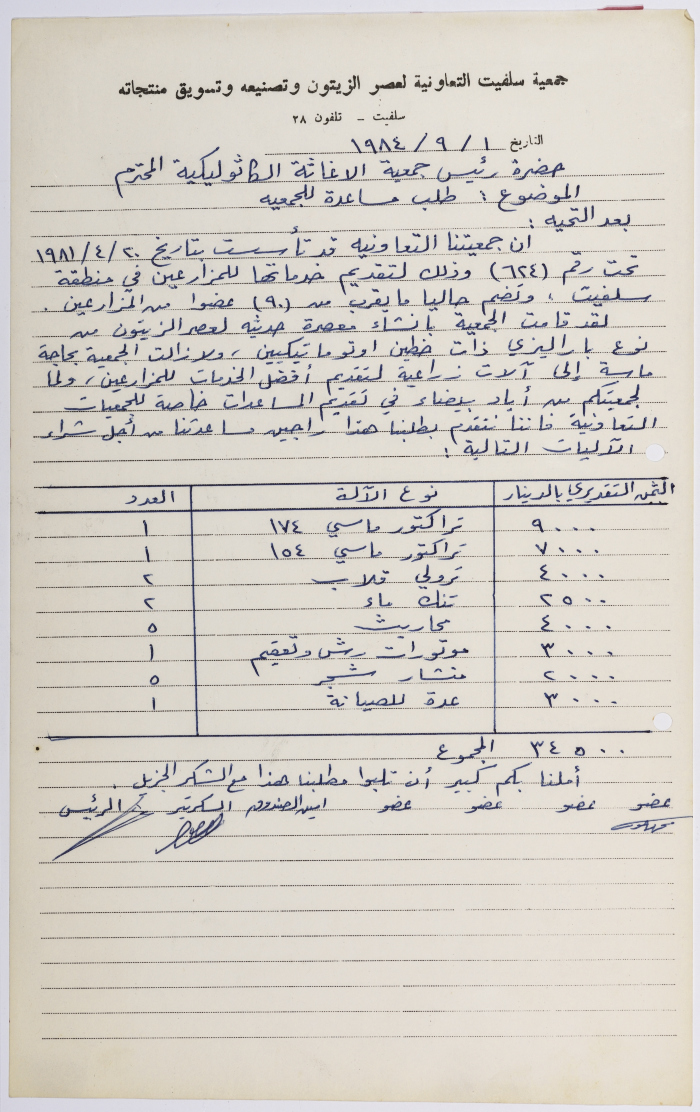 جمعية سلفيت التعاونية لعصر الزيتون وتصنيعه وتسويق منتجاته
سلفيت - تلفون ٢٨
التاريخ ١ / ٩ / ١٩٨٤
حضرة رئيس جمعية الاغاثة الكاثوليكية المحترم
الموضوع : طلب مساعدة للجمعيه
بعد التحيه :
ان جمعيتنا التعاونيه قد تأسست بتاريخ ٢٠ / ٤ / ١٩٨١
تحت رقم (٦٢٤) وذلك لتقديم خدماتها للمزارعين في منطقة
سلفيت ، وتضم حاليا ما يقرب من (٩٠) عضوا من المزارعين .
لقد قامت الجمعية بانشاء معصرة حديثه لعصر الزيتون من
نوع باراليزي ذات خطين اوتوماتيكيين ، ولا زالت الجمعية بحاجة
ماسة إلى آلات زراعية لتقديم أفضل الخدمات للمزارعين ، ولما
لجمعيتكم من أياد بيضاء في تقديم المساعدات خاصة للجمعيات
التعاونية فاننا نتقدم بطلبنا هذا راجين مساعدتنا من أجل شراء
الآليات التالية :
الثمن التقديري بالدينار نوع الآلة العدد
٩٠٠٠ تراكتور ماسي ١٧٤ ١
٧٠٠٠ تراكتور ماسي ١٥٤ ١
٤٠٠٠ ترولي قلاب ٢
٢٥٠٠ تنك ماء ٢
٤٠٠٠ محاريث ٥
٣٠٠٠ موتورات رش وتعقيم ١
٢٠٠٠ منشار شجر ٥
٣٠٠٠ عدة للصيانة ١
٣٤٥٠٠ المجموع
أملنا بكم كبير أن تلبوا مطلبنا هذا مع الشكر الجزيل .
عضو عضو عضو عضو امين الصندوق السكرتير الرئيس